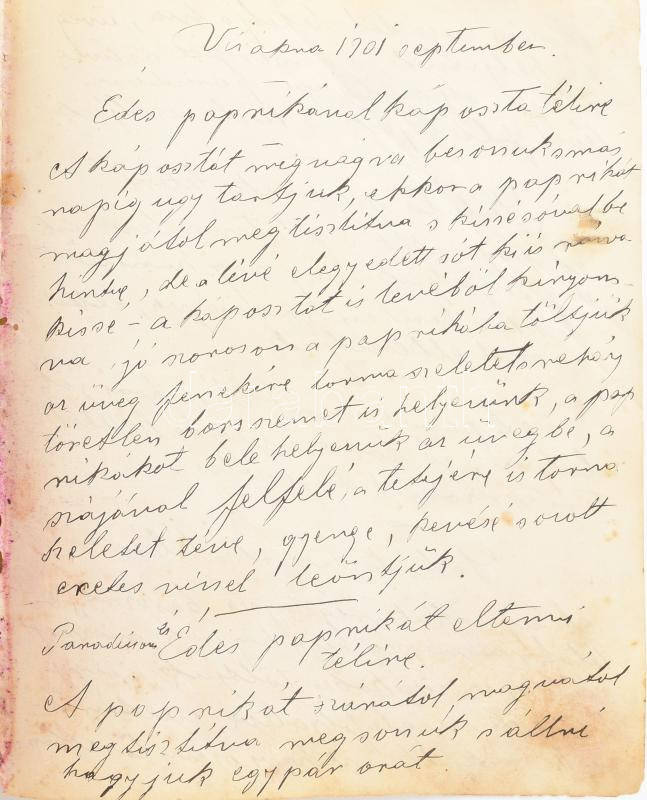 Vízakna 1901 september.
Édes paprikánál káposzta télire
A káposztát megvágva besózuk s más
napig ugy tartjuk, ekkor a paprikát
magjától megtisztitva s kissé sóval be
hintve, de a lévé elegyedett sót ki is rázva
kissé – a káposztát is levéből kinyom-
va jó szorosan a paprikába töltjük
az üveg fenekére torma szeletet s nehány
töretlen bors szemet is helyezünk, a pap
rikákat bele helyezzük az üvegbe, a
szájával felfelé, a tetejére is torma
szeletet téve, gyenge, kevésé sózott
ecetes vízzel leöntjük.
Paradicsom és Édes paprikát eltenni
télire.
A paprikát szárától, magvától
megtisztitva megsózuk s állni
hagyjuk egy pár órát.